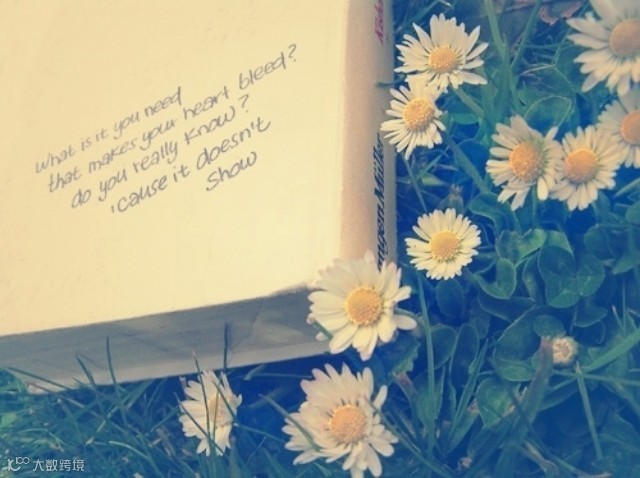 what is it you need
that makes your heart bleed?
do you really know?
'cause it doesn't
show
Müller
大数跨境